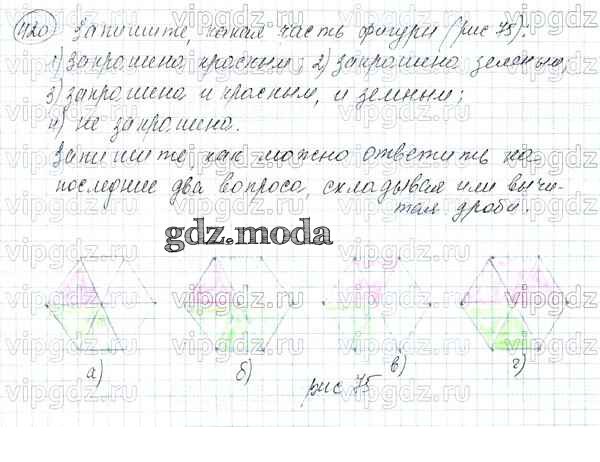 1120 Запишите, какая часть фигуры (рис 75):
1) закрашена красным; 2) закрашена зеленым;
3) закрашена и красным, и зеленым;
4) не закрашена.
Запишите, как можно ответить на
последние два вопроса, складывая или вычи-
тая дроби.
gdz.moda
а) б) в) г)
рис 75
vipgdz.ru